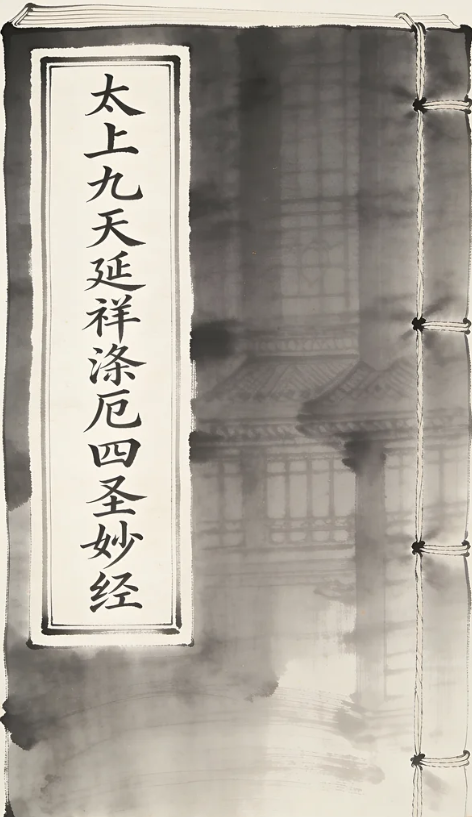 太上九天延祥涤厄四圣妙经